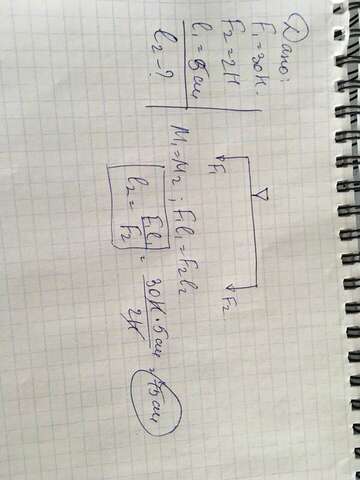 Дано:
F₁=30Н.
F₂=2Н
l₁=5см
l₂-?
F₁
F₂
M₁=M₂; F₁l₁=F₂l₂
l₂= F₁l₁/F₂ = 30Н·5см/2Н =75см